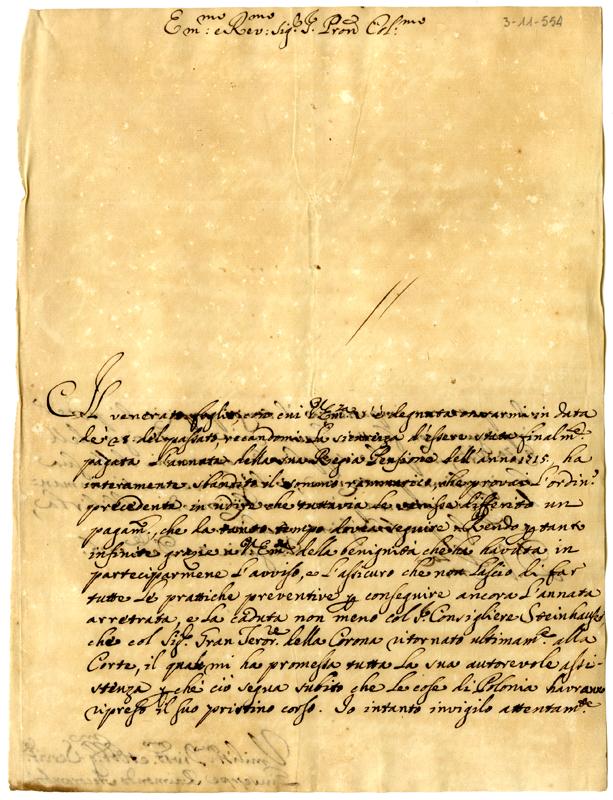 3-11-554
Em:mo e Rev:mo Sig:r Sig.r Pron Col:mo
Il venerato foglio con cui V. Em:za s'è degnata onorarmi in data
de' 28. del passato recandomi la sicurezza d'essere stata finalm:te
pagata l'annata della sua Regia Pensione dell'anno 1715. ha
interamente sbandito il sommo ramarico, che provai l'ordin:o
precedente in udire che tuttavia le venisse differito un
pagam:to, che da tanto tempo dovea seguire. Rendo p tante
infinite grazie a V. Em:za della benignità che ha havuta in
parteciparmene l'avviso, e l'assicuro che non lascio di far
tutte le prattiche preventive p conseguire ancora l'annata
arretrata, e la caduta non meno col Sig.r Consigliere Steinhauser
che col Sig:r Gran Tesor:re della Corona ritornato ultimam:te alla
Corte, il quale mi ha promessa tutta la sua autorevole assi-
stenza p che ciò segua subito che le cose di Polonia havranno
ripreso il suo pristino corso. Io intanto invigilo attentam:te